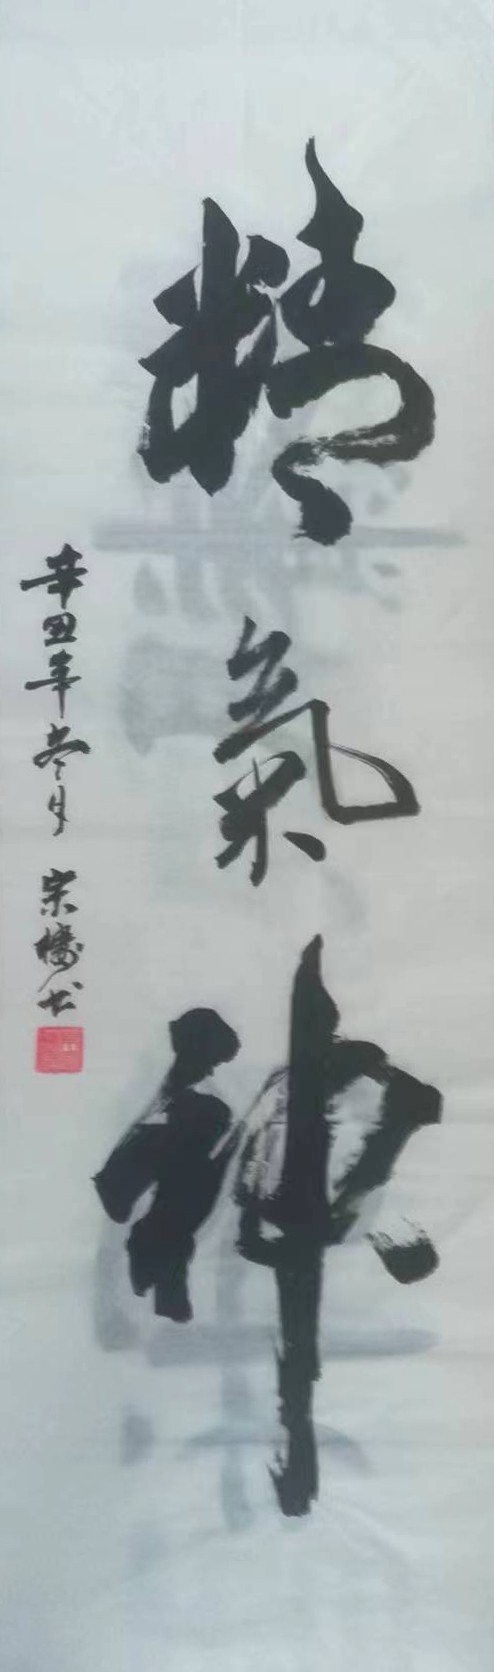 精氣神
辛丑年冬月 宗樓书